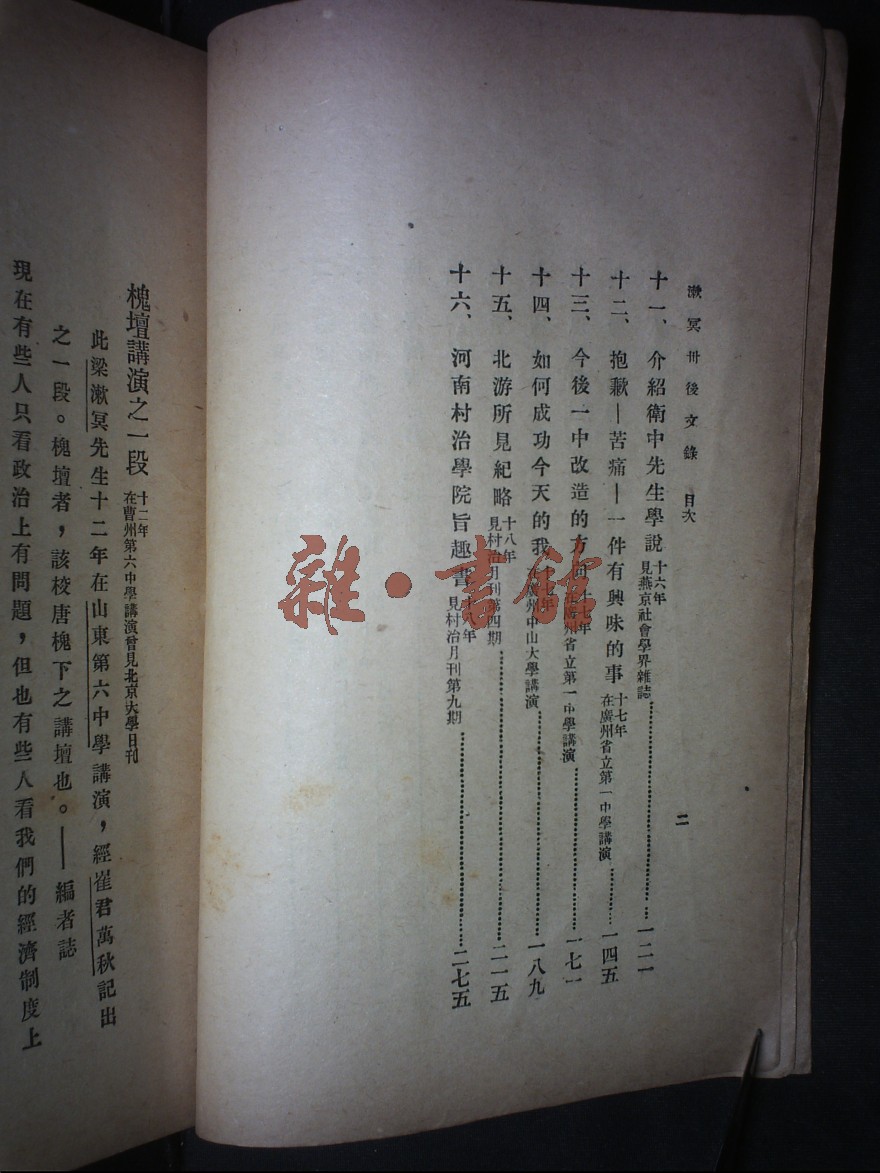 漱冥卅後文錄　目次　二
十一、介紹衛中先生學說 十六年 見燕京社會學界雜誌…………一二一
十二、抱歉—苦痛—一件有興味的事 十七年 在廣州省立第一中學講演…………一四五
十三、今後一中改造的方向 十七年 在廣州省立第一中學講演…………一七一
十四、如何成功今天的我 廣州中山大學講演…………一八九
十五、北游所見紀略 十八年 見村治月刊第四期…………二一五
十六、河南村治學院旨趣書 十八年 見村治月刊第九期…………二七五
槐壇講演之一段 十二年 在曹州第六中學講演曾見北京大學日刊
此梁漱冥先生十二年在山東第六中學講演，經崔君萬秋記出
之一段。槐壇者，該校唐槐下之講壇也。——編者誌
現在有些人只看政治上有問題，但也有些人看我們的經濟制度上
雜·書館